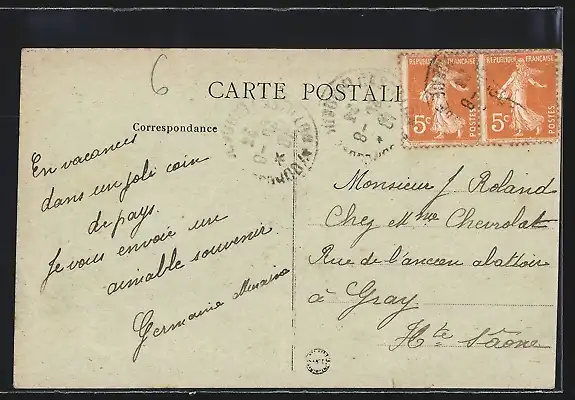 6
CARTE POSTALE
Correspondance
REPUBLIQUE FRANÇAISE
5c
POSTES
REPUBLIQUE FRANÇAISE
5c
POSTES
En vacances
dans un joli coin
de pays.
Je vous envoie un
aimable souvenir
Germaine
Monsieur J. Roland
Chez Mme Chevrolat
Rue de l'ancien abattoir
à Gray
Hte Sâone